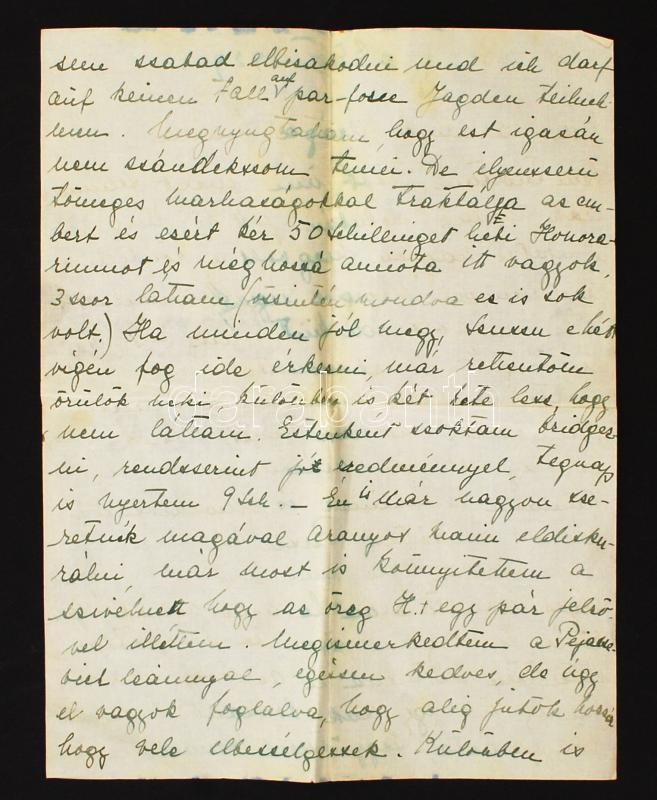 sem szabad elbizakodni und ich darf
auf keinen Fall auf par-force Jagden teilneh-
men. Megnyugtattam, hogy ezt igazán
nem szándékszom tenni. De ilyenszerü
tömeges marhaságokkal traktálja az em-
bert és ezért kér 50 Schillinget heti Honora-
riumot és még hozzá amióta itt vagyok,
3szor láttam (öszintén mondva ez is sok
volt.) Ha minden jól megy, Zsuzsu e hét
végén fog ide érkezni, már rettentöen
örülök neki különben is két hete lesz, hogy
nem láttam. Esténként szoktam bridgez-
ni, rendszerint jó eredménnyel, tegnap
is nyertem 9 Sch. – Én is már nagyon sze-
retnék magával aranyos Mami eldisku-
rálni, már most is könnyitettem a
szivémen hogy az öreg H.t egy pár jelzö-
vel illettem. Megismerkedtem a Pejacse-
vich leánnyal, egészen kedves, de úgy
el vagyok foglalva, hogy alig jutok hozzá
hogy vele elbeszélgessek. Különben is
darabanth